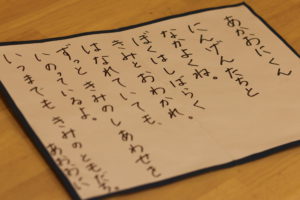 あかおにくん
にんげんたちと
なかよくね。
ぼくはしばらく
きみとおわかれ。
はなれていても、
ずっときみのしあわせを
いのっているよ。
いつまでもきみのともだち。